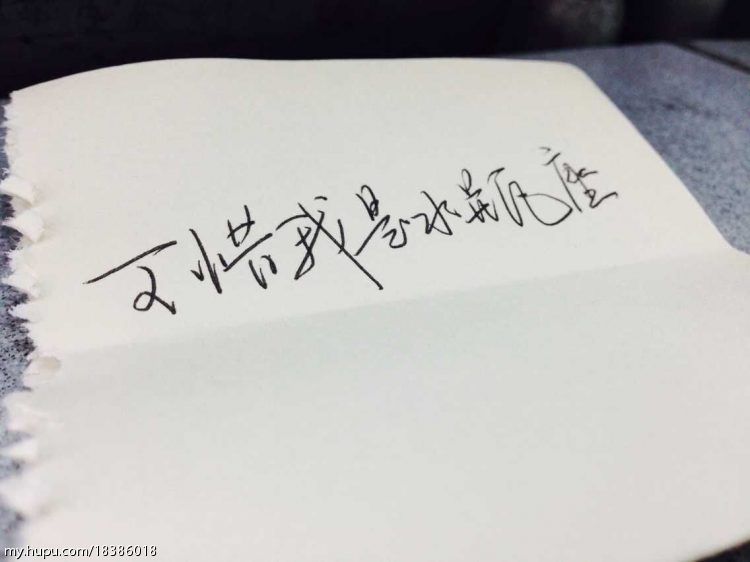 可惜我是水瓶座
my.hupu.com/18386018